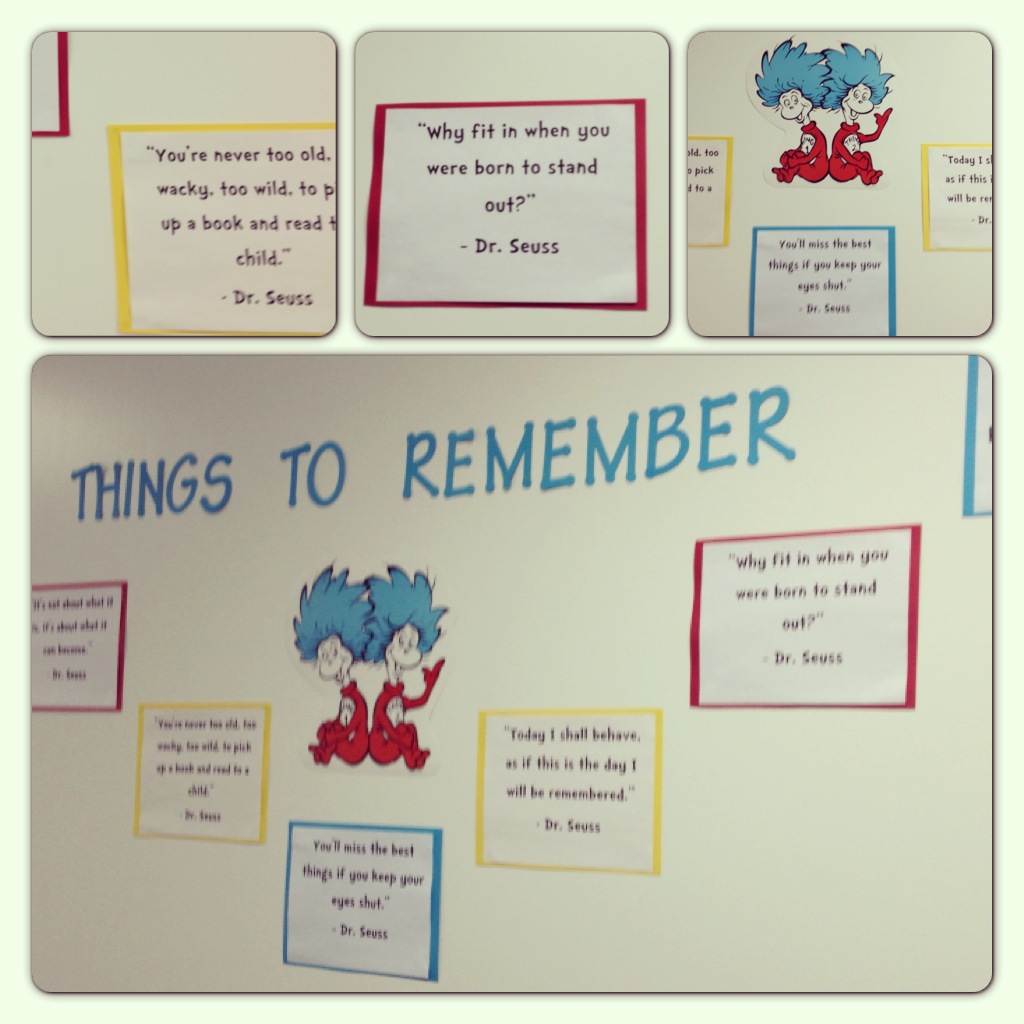 "You're never too old,
wacky, too wild, to p
up a book and read t
child."
- Dr. Seuss
"Why fit in when you
were born to stand
out?"
- Dr. Seuss
old, too
o pick
d to a
"Today I sh
as if this i
will be rem
- Dr.
You'll miss the best
things if you keep your
eyes shut."
- Dr. Seuss
THINGS TO REMEMBER
"It's not about what it
is, it's about what it
can become."
- Dr. Seuss
"You're never too old, too
wacky, too wild, to pick
up a book and read to a
child."
- Dr. Seuss
You'll miss the best
things if you keep your
eyes shut."
- Dr. Seuss
"Today I shall behave,
as if this is the day I
will be remembered."
- Dr. Seuss
"Why fit in when you
were born to stand
out?"
- Dr. Seuss